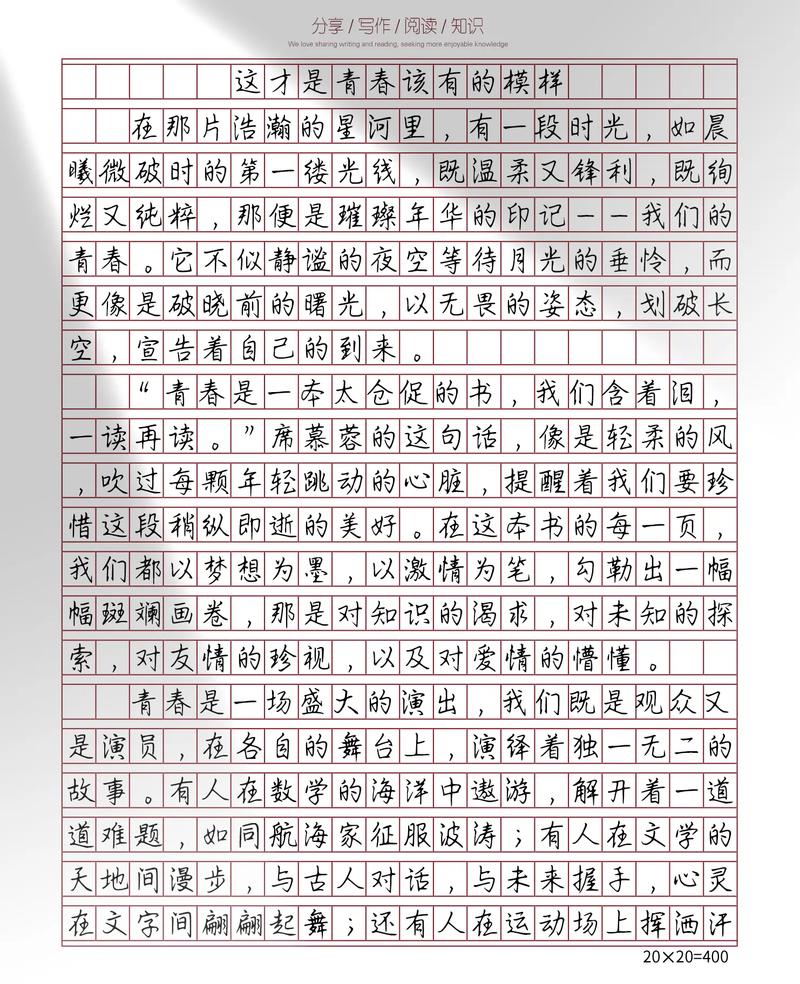 分享 / 写作 / 阅读 / 知识
We love sharing writing and reading, seeking more enjoyable knowledge
这才是青春该有的模样
在那片浩瀚的星河里，有一段时光，如晨
曦微破时的第一缕光线，既温柔又锋利，既绚
烂又纯粹，那便是璀璨年华的印记——我们的
青春。它不似静谧的夜空等待月光的垂怜，而
更像是破晓前的曙光，以无畏的姿态，划破长
空，宣告着自己的到来。
“青春是一本太仓促的书，我们含着泪，
一读再读。”席慕蓉的这句话，像是轻柔的风
，吹过每颗年轻跳动的心脏，提醒着我们要珍
惜这段稍纵即逝的美好。在这本书的每一页，
我们都以梦想为墨，以激情为笔，勾勒出一幅
幅斑斓画卷，那是对知识的渴求，对未知的探
索，对友情的珍视，以及对爱情的懵懂。
青春是一场盛大的演出，我们既是观众又
是演员，在各自的舞台上，演绎着独一无二的
故事。有人在数学的海洋中遨游，解开着一道
道难题，如同航海家征服波涛；有人在文学的
天地间漫步，与古人对话，与未来握手，心灵
在文字间翩翩起舞；还有人在运动场上挥洒汗
20×20=400